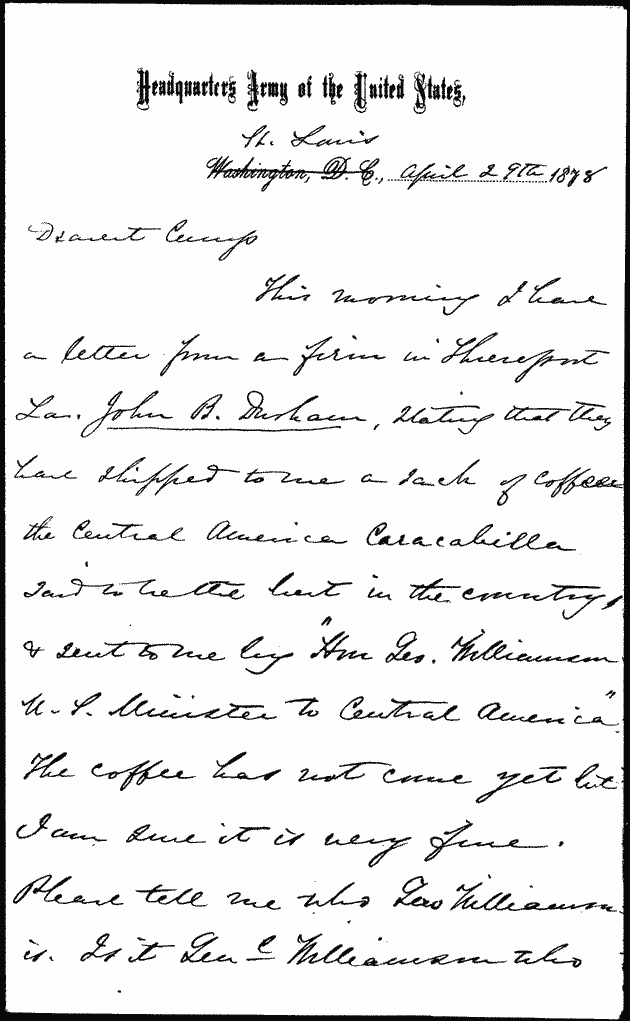 Headquarters Army of the United States,
St. Louis
Washington, D. C., April 29th 1878
Dearest Cump
This morning I have
a letter from a firm in Shreveport
La. John B. Durham, stating that they
have shipped to me a sack of coffee
the Central America Caracabilla
said to be the best in the country,
& sent to me by "Hon Geo. Williamson
U. S. Minister to Central America".
The coffee has not come yet but
I am sure it is very fine.
Please tell me who Geo Williamson
is. Is it Genl Williamson who